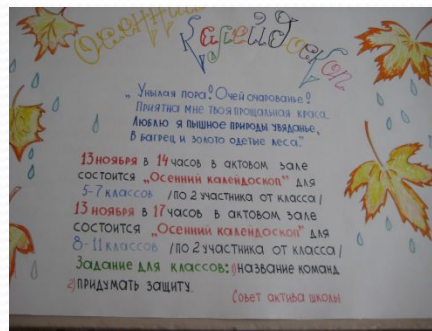 Осенний
Калейдоскоп
„Унылая пора! Очей очарованье!
Приятна мне твоя прощальная краса.
Люблю я пышное природы увяданье,
В багрец и золото одетые леса."
13 ноября в 14 часов в актовом зале
состоится „Осенний калейдоскоп" для
5-7 классов /по 2 участника от класса/
13 ноября в 17 часов в актовом зале
состоится „Осенний калейдоскоп" для
8-11 классов /по 2 участника от класса/
Задание для классов: 1) название команд
2) придумать защиту.
Совет актива школы